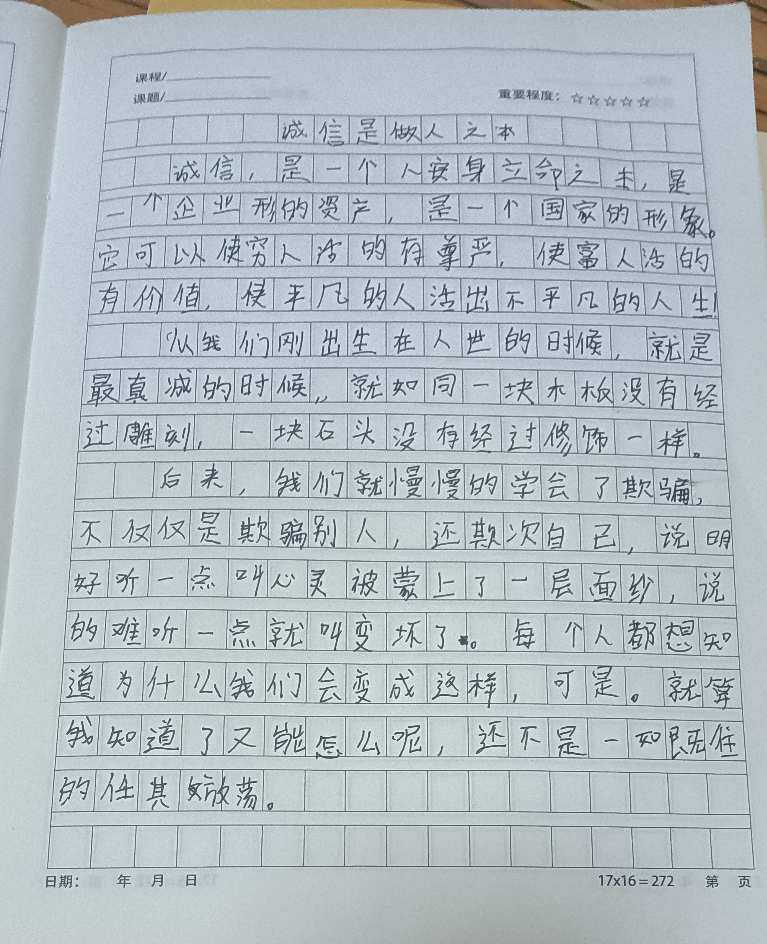 课程/
课题/
重要程度：☆☆☆☆☆
诚信是做人之本
诚信，是一个人安身立命之本，是
一个企业形的资产，是一个国家的形象。
它可以使穷人活的有尊严，使富人活的
有价值，使平凡的人活出不平凡的人生！
从我们刚出生在人世的时候，就是
最真诚的时候，，就如同一块木板没有经
过雕刻，一块石头没有经过修饰一样。
后来，我们就慢慢的学会了欺骗，
不仅仅是欺骗别人，还欺次自己，说明
好听一点叫心灵被蒙上了一层面纱，说
的难听一点就叫变坏了。每个人都想知
道为什么我们会变成这样，可是。就算
我知道了又能怎么呢，还不是一如既住
的任其放荡。
日期： 年 月 日
17x16=272 第 页